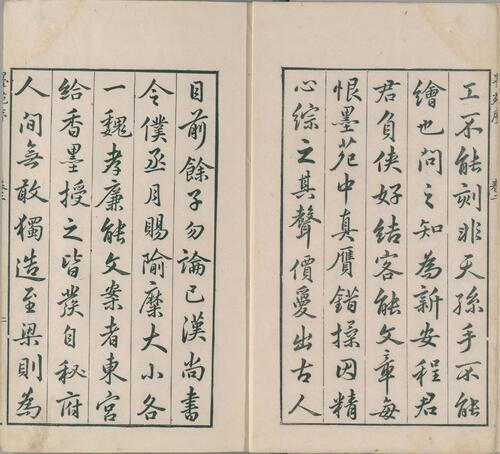 工不能刻非天孫手不能
繪也問之知為新安程君
君負俠好結客能文章每
恨墨苑中真贗錯揉因精
心綜之其聲價愛出古人
目前餘子勿論已漢尚書
令僕丞月賜隃麋大小各
一魏孝廉能文案者東宮
給香墨授之皆發自秘府
人間無敢獨造至梁則為